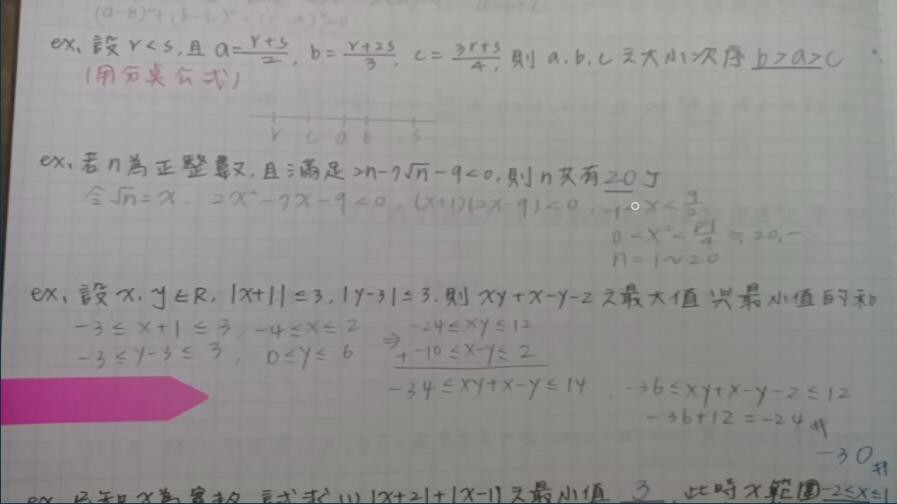 (a-b)²+(b-c)²+(c-a)²=0
ex、設 r<s,且 a=\frac{r+s}{2}, b=\frac{r+2s}{3}, c=\frac{3r+s}{4},則 a,b,c 之大小次序 b>a>c
(用分點公式)
r c a b s
ex、若n為正整數,且滿足2n-7√n-9<0,則n共有20個
令√n=x, 2x²-7x-9<0, (x+1)(2x-9)<0, -1<x<\frac{9}{2}
0<x²<\frac{81}{4}≒20,…
n=1~20
ex、設x,y∈R, |x+1|≤3, |y-3|≤3,則 xy+x-y-2 之最大值與最小值的和
-3≤x+1≤3, -4≤x≤2 ⇒ -24≤xy≤12
-3≤y-3≤3, 0≤y≤6 +-10≤x-y≤2
-34≤xy+x-y≤14, -36≤xy+x-y-2≤12
-36+12=-24#
-30#
ex、已知x為實數,試求(1)|x+2|+|x-1|之最小值 3 ,此時x範圍-2≤x≤1